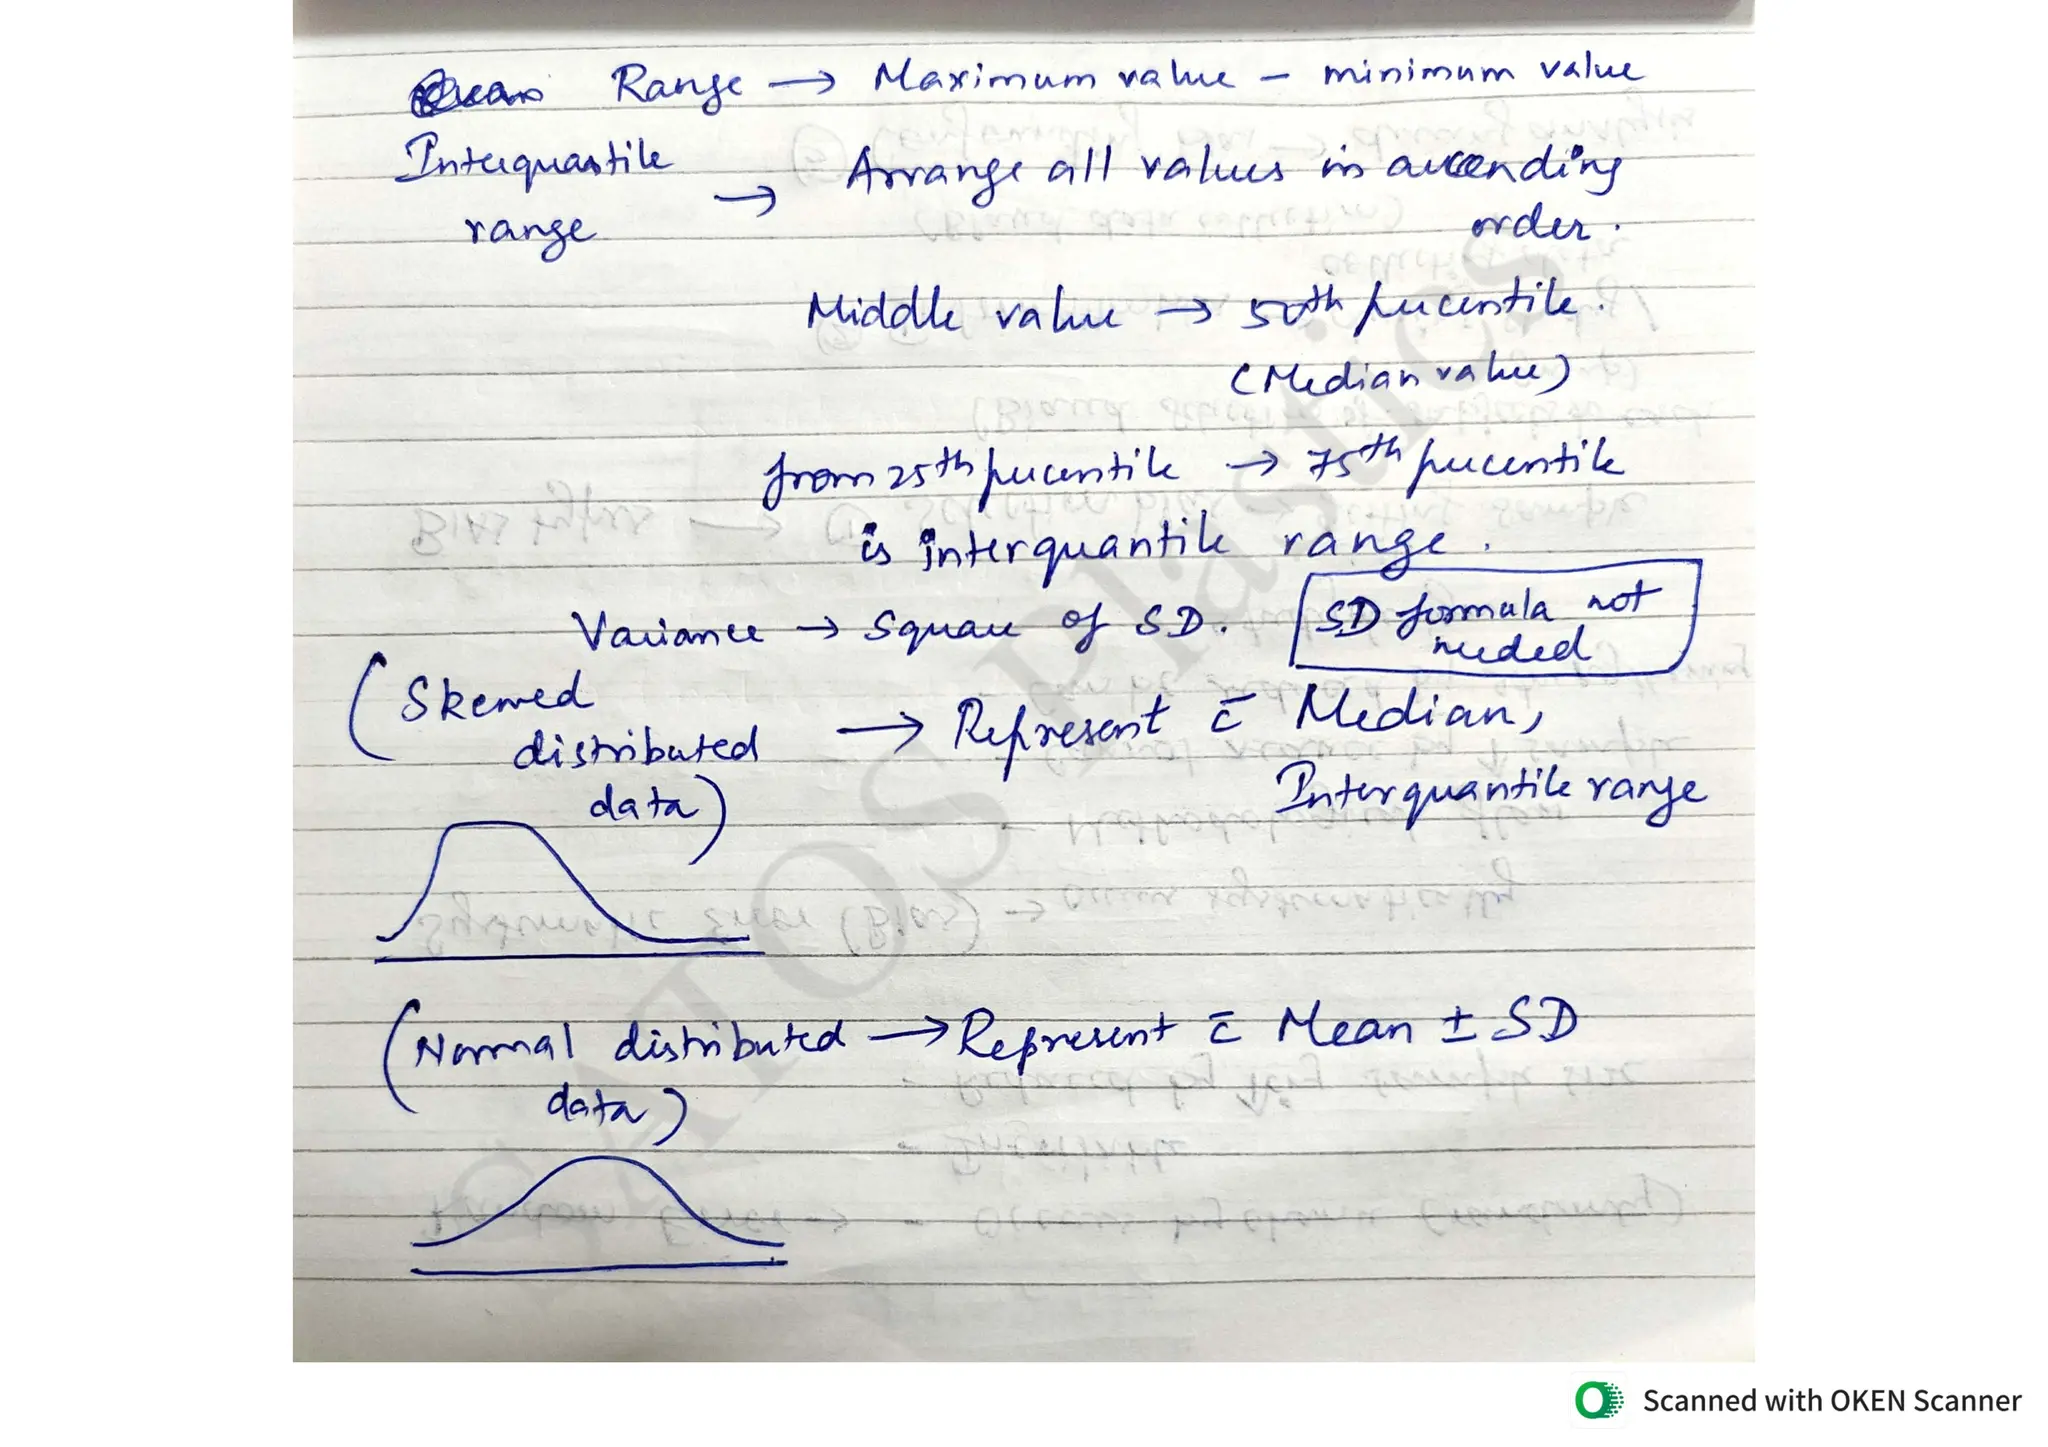 Range → Maximum value – minimum value
Interquartile range → Arrange all values in ascending
order.
Middle value → 50th percentile.
(Median value)
from 25th percentile → 75th percentile
is interquantile range.
Variance → Square of SD.
SD formula not
needed
(Skewed
distributed
data) → Represent c̄ Median,
Interquantile range
(Normal distributed
data) → Represent c̄ Mean ± SD
SATOS Plastics
Scanned with OKEN Scanner